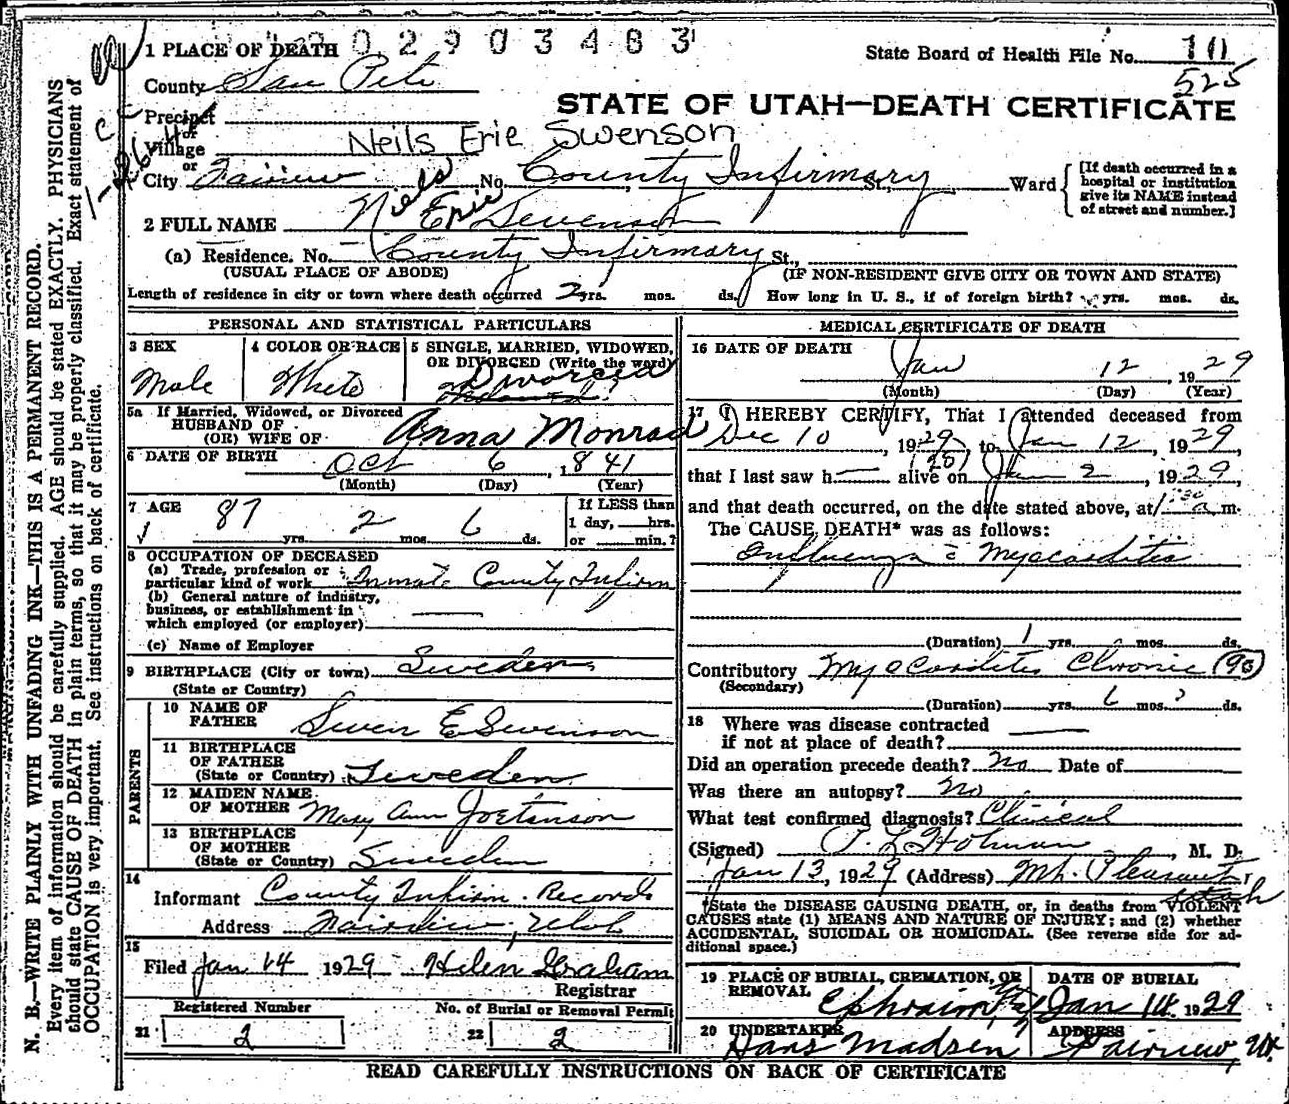 1 PLACE OF DEATH 2903483
State Board of Health File No. 10
525
County San Pete
STATE OF UTAH—DEATH CERTIFICATE
Precinct
or
Village
Neils Eric Swenson
or
City Fairview No. County Infirmary St., Ward
[If death occurred in a hospital or institution give its NAME instead of street and number.]
Niels Eric
2 FULL NAME N. E. Swenson
(a) Residence. No. County Infirmary St.,
(USUAL PLACE OF ABODE) (IF NON-RESIDENT GIVE CITY OR TOWN AND STATE)
Length of residence in city or town where death occurred 2 yrs. mos. ds. How long in U. S., if of foreign birth? yrs. mos. ds.
PERSONAL AND STATISTICAL PARTICULARS
3 SEX Male
4 COLOR OR RACE White
5 SINGLE, MARRIED, WIDOWED, OR DIVORCED (Write the word) Divorced
5a If Married, Widowed, or Divorced
HUSBAND OF
(OR) WIFE OF Anna Monrad
6 DATE OF BIRTH Oct 6, 1841
(Month) (Day) (Year)
7 AGE 87 yrs. 2 mos. 6 ds.
If LESS than 1 day, hrs. or min.?
8 OCCUPATION OF DECEASED
(a) Trade, profession or particular kind of work Inmate County Infirm
(b) General nature of industry, business, or establishment in which employed (or employer)
(c) Name of Employer
9 BIRTHPLACE (City or town) Sweden
(State or Country)
PARENTS
10 NAME OF FATHER Swen E Swenson
11 BIRTHPLACE OF FATHER (State or Country) Sweden
12 MAIDEN NAME OF MOTHER Mary Ann
13 BIRTHPLACE OF MOTHER (State or Country) Sweden
14 Informant County Infirm. Records
Address Fairview, Utah
15 Filed Jan 14 1929 Helen Graham
Registrar
Registered Number
21 2
No. of Burial or Removal Permit
22 2
MEDICAL CERTIFICATE OF DEATH
16 DATE OF DEATH Jan 12, 1929
(Month) (Day) (Year)
17 I HEREBY CERTIFY, That I attended deceased from
Dec 10, 1929 to Jan 12, 1929,
(28)
that I last saw h alive on Jan 2, 1929,
and that death occurred, on the date stated above, at 1:30 a m.
The CAUSE DEATH* was as follows:
Influenza c Myocarditis
(Duration) 1 yrs. mos. ds.
Contributory Myocarditis Chronic (90)
(Secondary)
(Duration) yrs. 6 mos. ? ds.
18 Where was disease contracted
if not at place of death?
Did an operation precede death? No Date of
Was there an autopsy? No
What test confirmed diagnosis? Clinical
(Signed) P. L. Holman, M. D.
Jan 13, 1929 (Address) Mt. Pleasant
Utah
*State the DISEASE CAUSING DEATH, or, in deaths from VIOLENT
CAUSES state (1) MEANS AND NATURE OF INJURY; and (2) whether
ACCIDENTAL, SUICIDAL OR HOMICIDAL. (See reverse side for additional space.)
19 PLACE OF BURIAL, CREMATION, OR REMOVAL Ephraim
DATE OF BURIAL Jan 14. 1929
20 UNDERTAKER Hans Madsen
ADDRESS Fairview, Ut.
READ CAREFULLY INSTRUCTIONS ON BACK OF CERTIFICATE
N. B.—WRITE PLAINLY WITH UNFADING INK—THIS IS A PERMANENT RECORD.
Every item of information should be carefully supplied. AGE should be stated EXACTLY. PHYSICIANS
should state CAUSE OF DEATH in plain terms, so that it may be properly classified. Exact statement of
OCCUPATION is very important. See instructions on back of certificate.